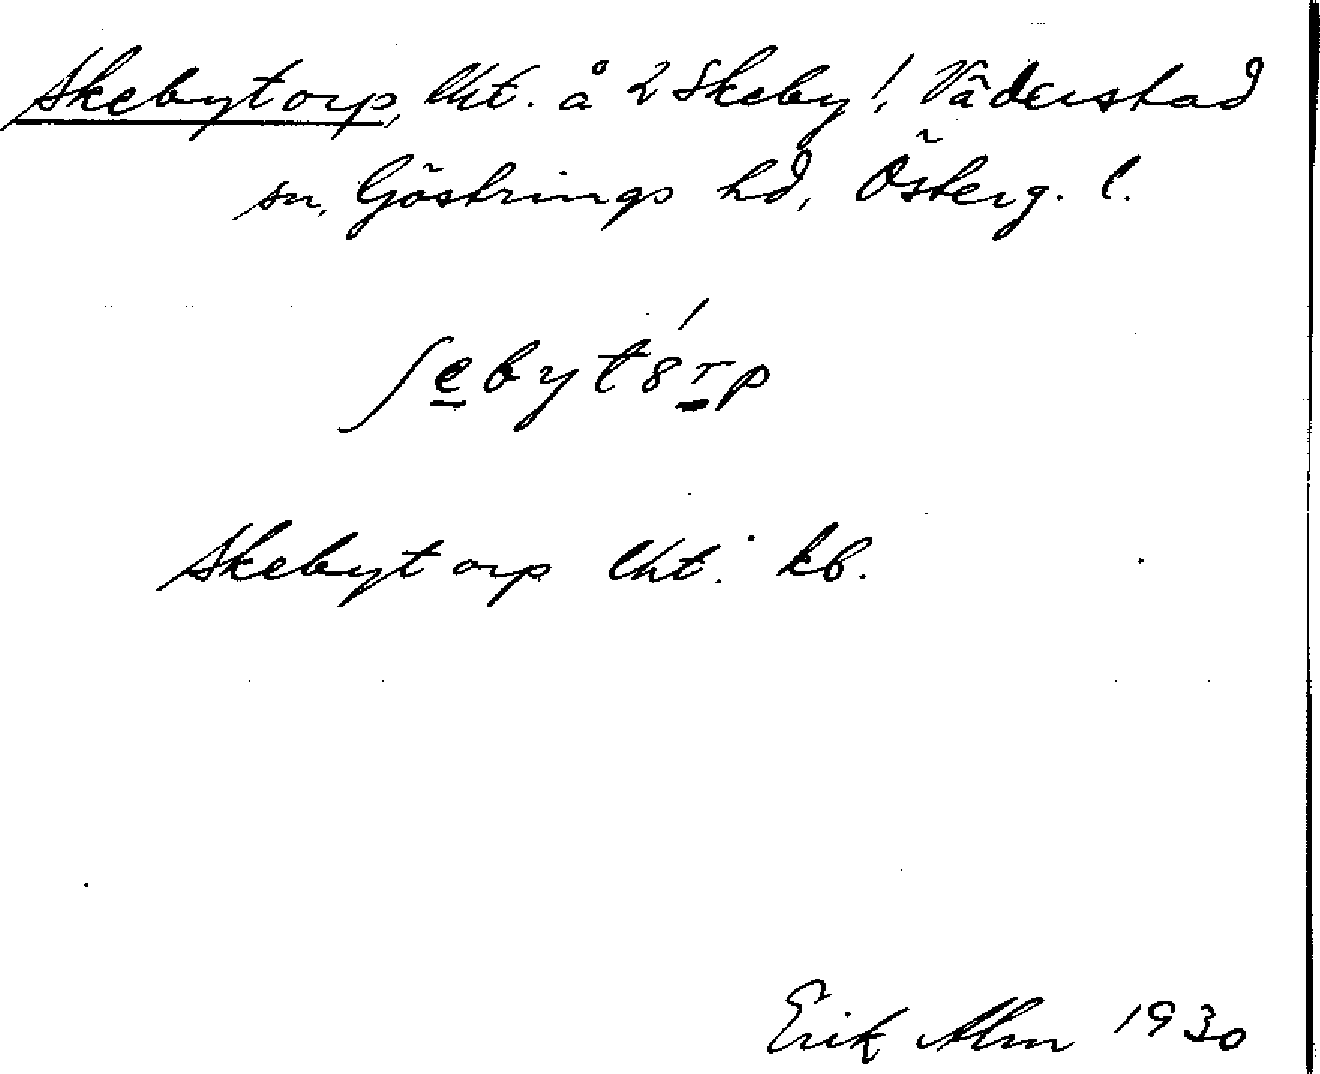 Skebytorp, lht. å 2 Skeby!, Väderstad
sn, Göstrings hd, Österg. l.
ʃebyt8́rp
Skebytorp lht. kb.
Erik Alm 1930